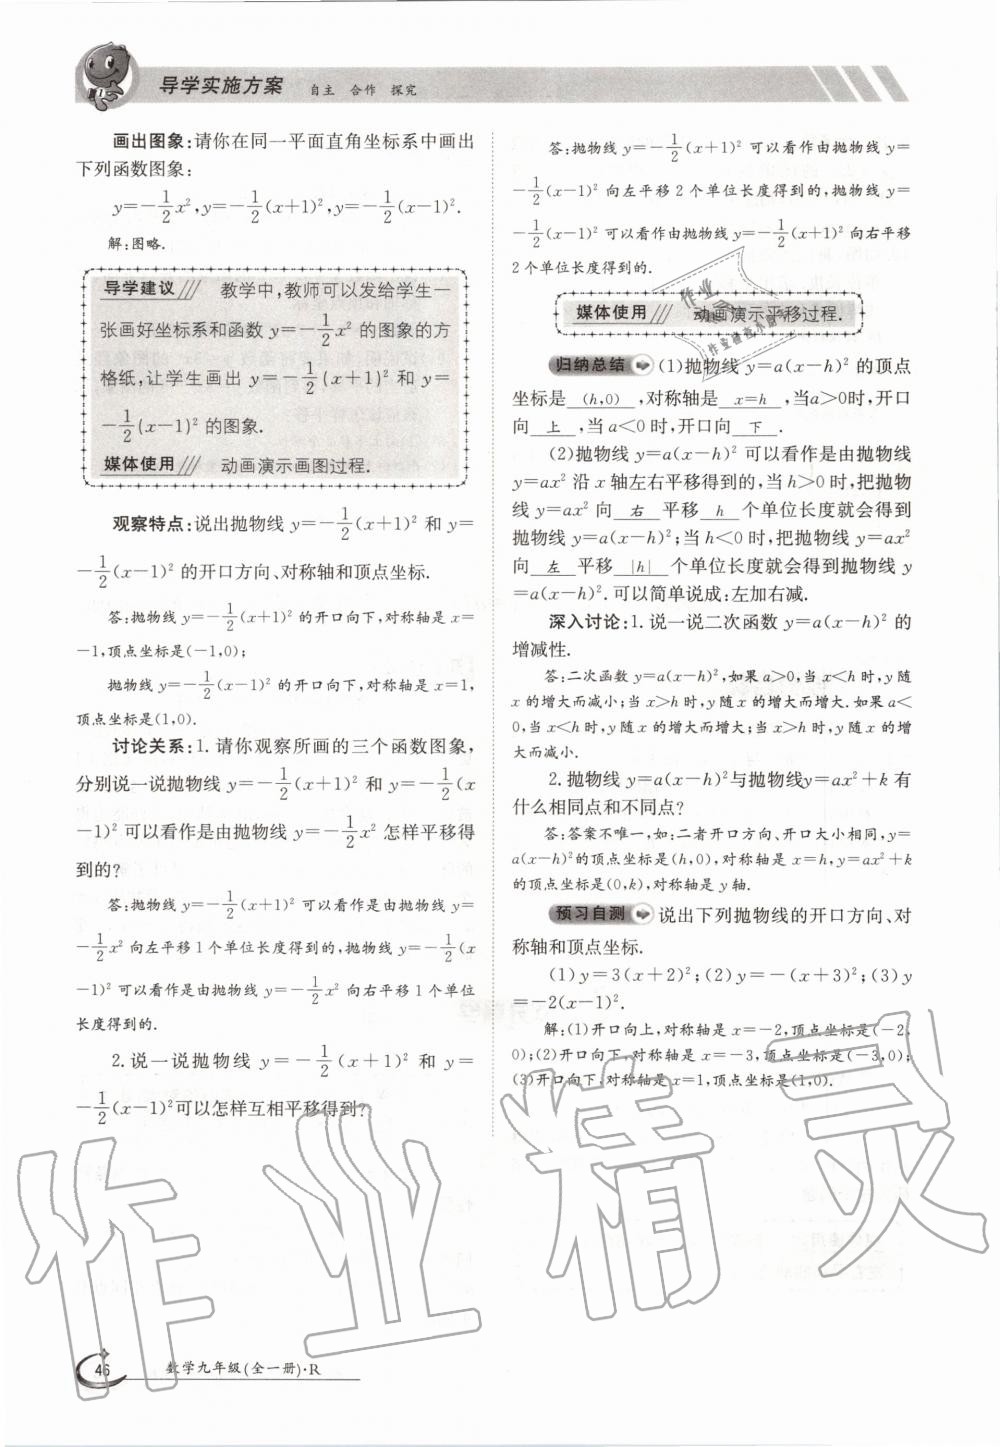 导学实施方案 自主 合作 探究
画出图象:请你在同一平面直角坐标系中画出
下列函数图象:
y=-1/2x²,y=-1/2(x+1)²,y=-1/2(x-1)².
解:图略.
导学建议/// 教学中,教师可以发给学生一
张画好坐标系和函数 y=-1/2x² 的图象的方
格纸,让学生画出 y=-1/2(x+1)² 和 y=
-1/2(x-1)² 的图象.
媒体使用/// 动画演示画图过程.
观察特点:说出抛物线 y=-1/2(x+1)² 和 y=
-1/2(x-1)² 的开口方向、对称轴和顶点坐标.
答:抛物线 y=-1/2(x+1)² 的开口向下,对称轴是 x=
-1,顶点坐标是(-1,0);
抛物线 y=-1/2(x-1)² 的开口向下,对称轴是 x=1,
顶点坐标是(1,0).
讨论关系:1.请你观察所画的三个函数图象,
分别说一说抛物线 y=-1/2(x+1)² 和 y=-1/2(x
-1)² 可以看作是由抛物线 y=-1/2x² 怎样平移得
到的?
答:抛物线 y=-1/2(x+1)² 可以看作是由抛物线 y=
-1/2x² 向左平移 1 个单位长度得到的,抛物线 y=-1/2(x
-1)² 可以看作是由抛物线 y=-1/2x² 向右平移 1 个单位
长度得到的.
2.说一说抛物线 y=-1/2(x+1)² 和 y=
-1/2(x-1)²可以怎样互相平移得到?
答:抛物线 y=-1/2(x+1)² 可以看作由抛物线 y=
-1/2(x-1)² 向左平移 2 个单位长度得到的,抛物线 y=
-1/2(x-1)² 可以看作由抛物线 y=-1/2(x+1)² 向右平移
2 个单位长度得到的.
媒体使用/// 动画演示平移过程.
归纳总结 (1)抛物线 y=a(x-h)² 的顶点
坐标是 (h,0) ,对称轴是 x=h ,当a>0时,开口
向 上 ,当 a<0 时,开口向 下 .
(2)抛物线 y=a(x-h)² 可以看作是由抛物线
y=ax² 沿 x 轴左右平移得到的,当 h>0 时,把抛物
线 y=ax² 向 右 平移 h 个单位长度就会得到
抛物线 y=a(x-h)²;当 h<0 时,把抛物线 y=ax²
向 左 平移 |h| 个单位长度就会得到抛物线 y
=a(x-h)².可以简单说成:左加右减.
深入讨论:1.说一说二次函数 y=a(x-h)² 的
增减性.
答:二次函数 y=a(x-h)²,如果 a>0,当 x<h 时,y 随
x 的增大而减小;当 x>h 时,y 随 x 的增大而增大.如果 a<
0,当 x<h 时,y 随 x 的增大而增大;当 x>h 时,y 随 x 的增
大而减小.
2.抛物线 y=a(x-h)²与抛物线y=ax²+k 有
什么相同点和不同点?
答:答案不唯一,如:二者开口方向、开口大小相同,y=
a(x-h)²的顶点坐标是(h,0),对称轴是 x=h,y=ax²+k
的顶点坐标是(0,k),对称轴是 y 轴.
预习自测 说出下列抛物线的开口方向、对
称轴和顶点坐标.
(1)y=3(x+2)²;(2)y=-(x+3)²;(3)y
=-2(x-1)².
解:(1)开口向上,对称轴是 x=-2,顶点坐标是(-2,
0);(2)开口向下,对称轴是 x=-3,顶点坐标是(-3,0);
(3)开口向下,对称轴是 x=1,顶点坐标是(1,0).
作业精灵
46 数学九年级(全一册)·R